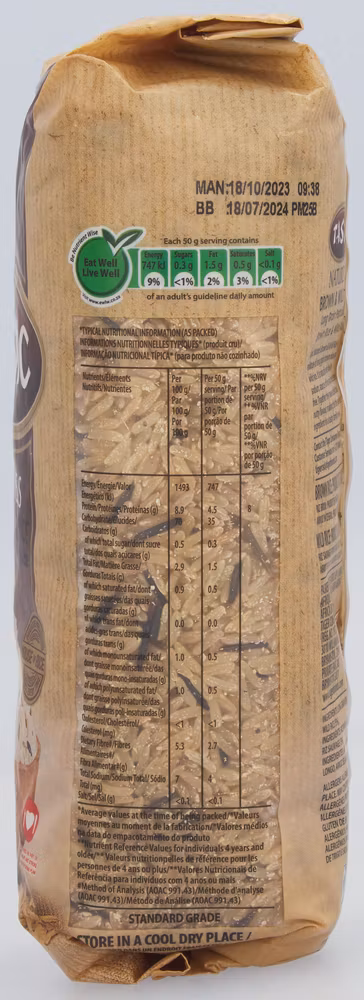 MAN:18/10/2023 09:38
BB :18/07/2024 PM25B
Each 50 g serving contains
Eat Well
Live Well
Energy
747 kJ
9%
Sugars
0.3 g
<1%
Fat
1.5 g
2%
Saturates
0.5 g
3%
Salt
<0.1 g
<1%
of an adult's guideline daily amount
*TYPICAL NUTRITIONAL INFORMATION (AS PACKED)
INFORMATIONS NUTRITIONNELLES TYPIQUES* (produit cru)/
INFORMAÇÃO NUTRICIONAL TÍPICA* (para produto não cozinhado)
Nutrients/Éléments
Nutritifs/Nutrientes
Per
100 g/
Par
100 g/
Por
100 g
Per 50 g
serving/Par
portion de
50 g/Por
porção de
50 g
**%NRV
per 50 g
serving/
**%VNR
par
portion de
50 g/
**%VNR
por porção
de 50 g
Energy/Énergie/Valor
Energético (kJ) 1493 747
Protein/Protéines/Proteínas (g) 8.9 4.5 8
Carbohydrate/Glucides/ 35
Carboidratos (g)
of which total sugar/dont sucre 0.5 0.3
total/dos quais açúcares (g)
Total Fat/Matière Grasse/ 2.9 1.5
Gorduras Totais (g)
of which saturated fat/dont 0.9 0.5
grasses saturées/das quais
gorduras saturadas (g)
of which trans fat/dont 0.0 0.0
acides gras trans/das quais
gorduras trans (g)
of which monounsaturated fat/ 1.0 0.5
dont graisse monoinsaturée/das
quais gordura mono-insaturadas (g)
of which polyunsaturated fat/ 1.0 0.5
dont graisse polyinsaturée/das
quais gordura poli-insaturadas (g)
Cholesterol/Cholestérol/ <1 <1
Colesterol (mg)
Dietary Fibre#/Fibres 5.3 2.7
Alimentaires#/
Fibra Alimentar# (g)
Total Sodium/Sodium Total/Sódio 7 4
Total (mg)
Salt/Sel/Sal (g) <0.1 <0.1
*Average values at the time of being packed/*Valeurs
moyennes au moment de la fabrication/*Valores médios
na data do empacotamento do produto
**Nutrient Reference Values for individuals 4 years and
older/**Valeurs nutritionnelles de référence pour les
personnes de 4 ans ou plus/**Valores Nutricionais de
Referência para indivíduos com 4 anos ou mais
#Method of Analysis (AOAC 991.43)/Méthode d'analyse
(AOAC 991.43)/Método de Análise (AOAC 991.43)
STANDARD GRADE
STORE IN A COOL DRY PLACE /